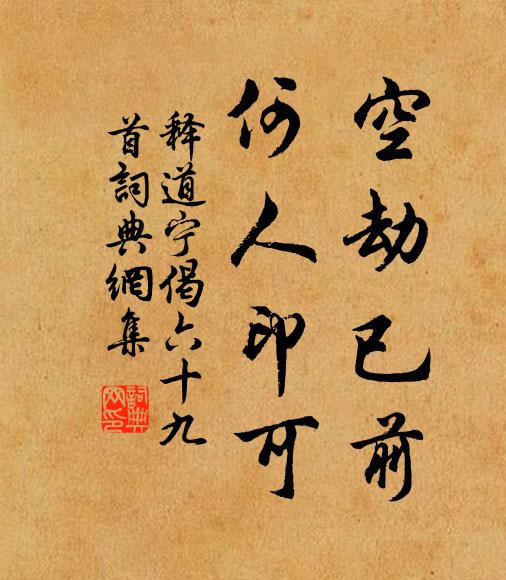 空劫已前
何人印可
释道宁偈六十九
首詞典網集
詞典网印